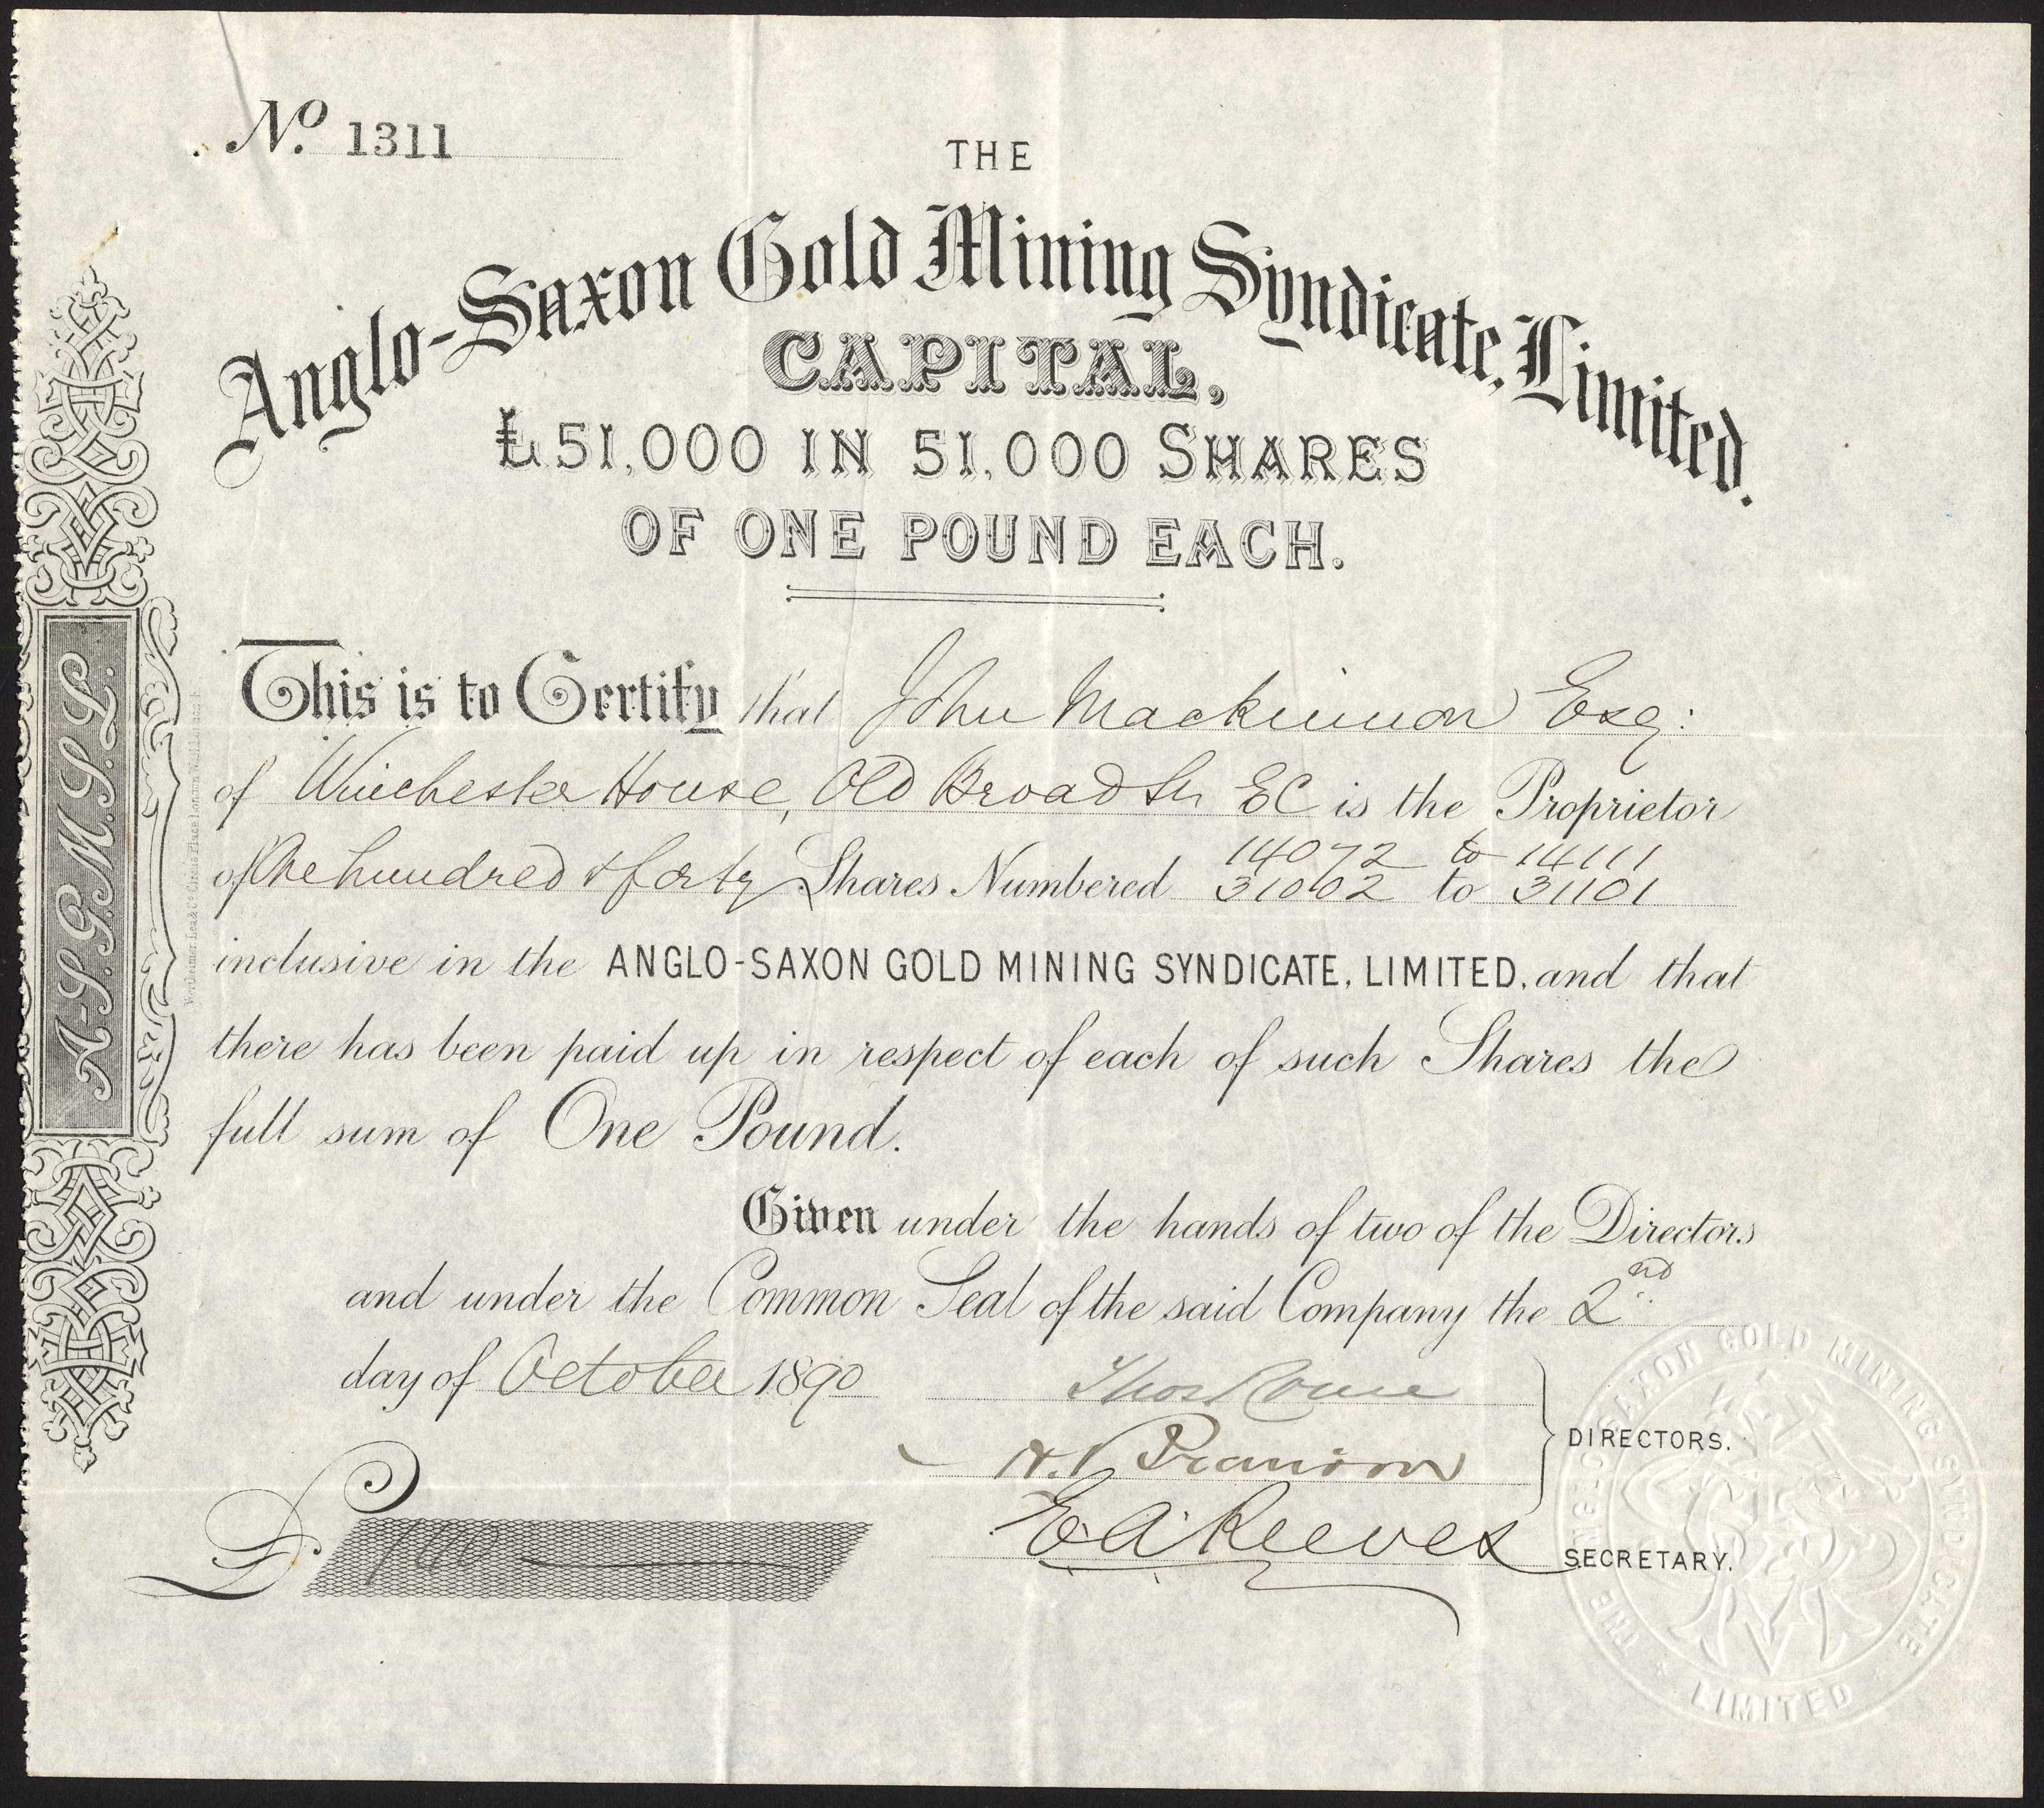 No. 1311
THE
Anglo-Saxon Gold Mining Syndicate, Limited.
CAPITAL,
£51,000 IN 51,000 SHARES
OF ONE POUND EACH.
This is to Certify that John Mackinnon Esq:
of Winchester House, Old Broad St EC is the Proprietor
of One hundred & forty Shares Numbered 14072 to 14111
31002 to 31101
inclusive in the ANGLO-SAXON GOLD MINING SYNDICATE, LIMITED, and that
there has been paid up in respect of each of such Shares the
full sum of One Pound.
Given under the hands of two of the Directors
and under the Common Seal of the said Company the 2nd
day of October 1890
DIRECTORS.
E A Reeves
SECRETARY.
£ 140
A-S.G.M.S.L.
THE ANGLO-SAXON GOLD MINING SYNDICATE
LIMITED